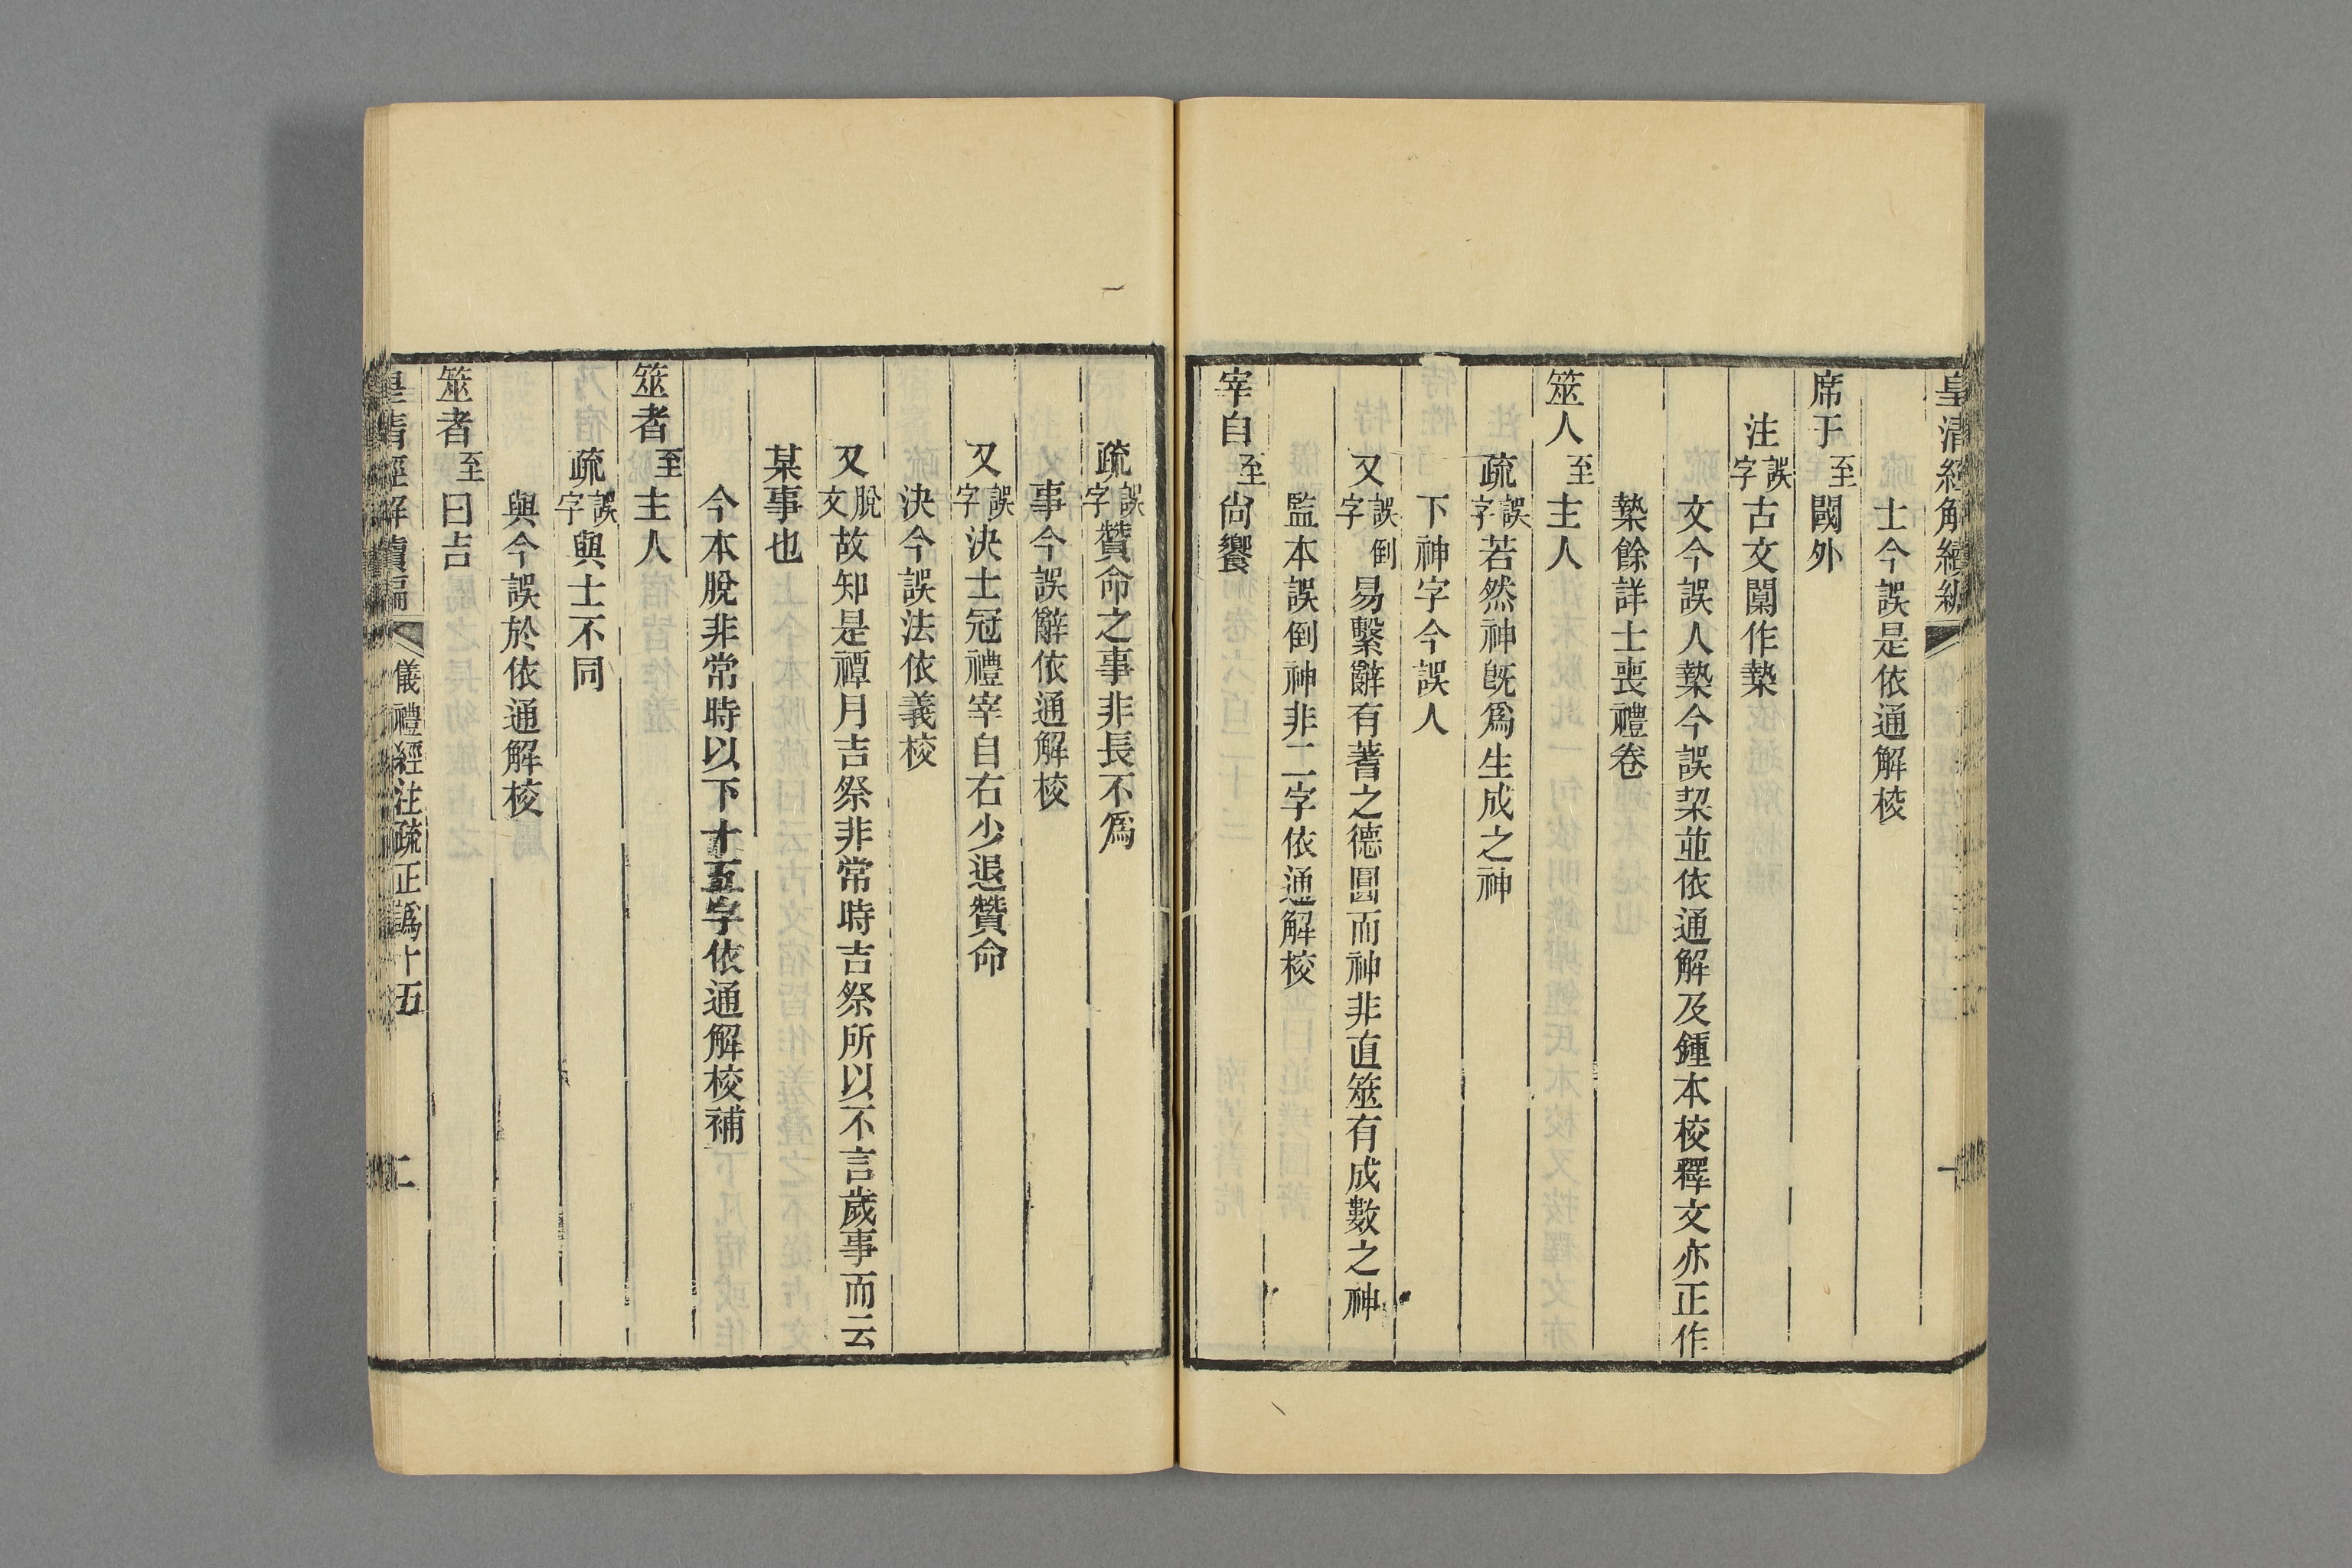 皇清經解續編
士今誤是依通解校
席于至閾外
注誤字古文闑作槷
文今誤人槷今誤栔並依通解及鍾本校釋文亦正作
槷餘詳士喪禮卷
筮人至主人
疏誤字若然神旣爲生成之神
下神字今誤人
又誤字倒易繫辭有蓍之德圓而神非直筮有成數之神
監本誤倒神非二字依通解校
宰自至尙饗
疏誤字贊命之事非長不爲
事今誤辭依通解校
又誤字決士冠禮宰自右少退贊命
決今誤法依義校
又脫文故知是禫月吉祭非常時吉祭所以不言歲事而云
某事也
今本脫非常時以下十五字依通解校補
筮者至主人
疏誤字與士不同
與今誤於依通解校
筮者至曰吉
皇清經解續編 儀禮經注疏正譌十五 二